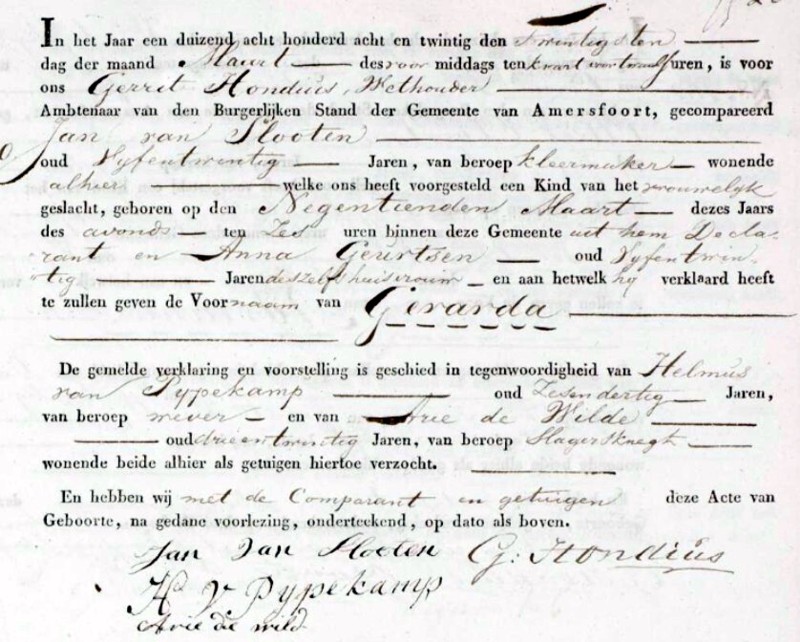 In het Jaar een duizend acht honderd acht en twintig den twintigsten
dag der maand Maart des voor middags ten kwart voor twaalf uren, is voor
ons Gerrit Hondius, Wethouder
Ambtenaar van den Burgerlijken Stand der Gemeente van Amersfoort, gecompareerd
Jan van Slooten
oud Vyfentwintig Jaren, van beroep kleermaker wonende
alhier welke ons heeft voorgesteld een Kind van het vrouwelyk
geslacht, geboren op den Negentienden Maart dezes Jaars
des avonds ten Zes uren binnen deze Gemeente uit hem Decla-
rant en Anna Geurtsen oud Vyfentwin-
tig Jaren deszelfs huisvrouw en aan hetwelk hy verklaard heeft
te zullen geven de Voornaam van Gerarda
De gemelde verklaring en voorstelling is geschied in tegenwoordigheid van Helmus
van Pypekamp oud Zesendertig Jaren,
van beroep wever en van Arie de Wilde
oud drieentwintig Jaren, van beroep Slagersknegt
wonende beide alhier als getuigen hiertoe verzocht.
En hebben wij met de Comparant en getuigen deze Acte van
Geboorte, na gedane voorlezing, onderteekend, op dato als boven.
Jan Van Slooten G. Hondius
Hs v Pypekamp
Arie de wild